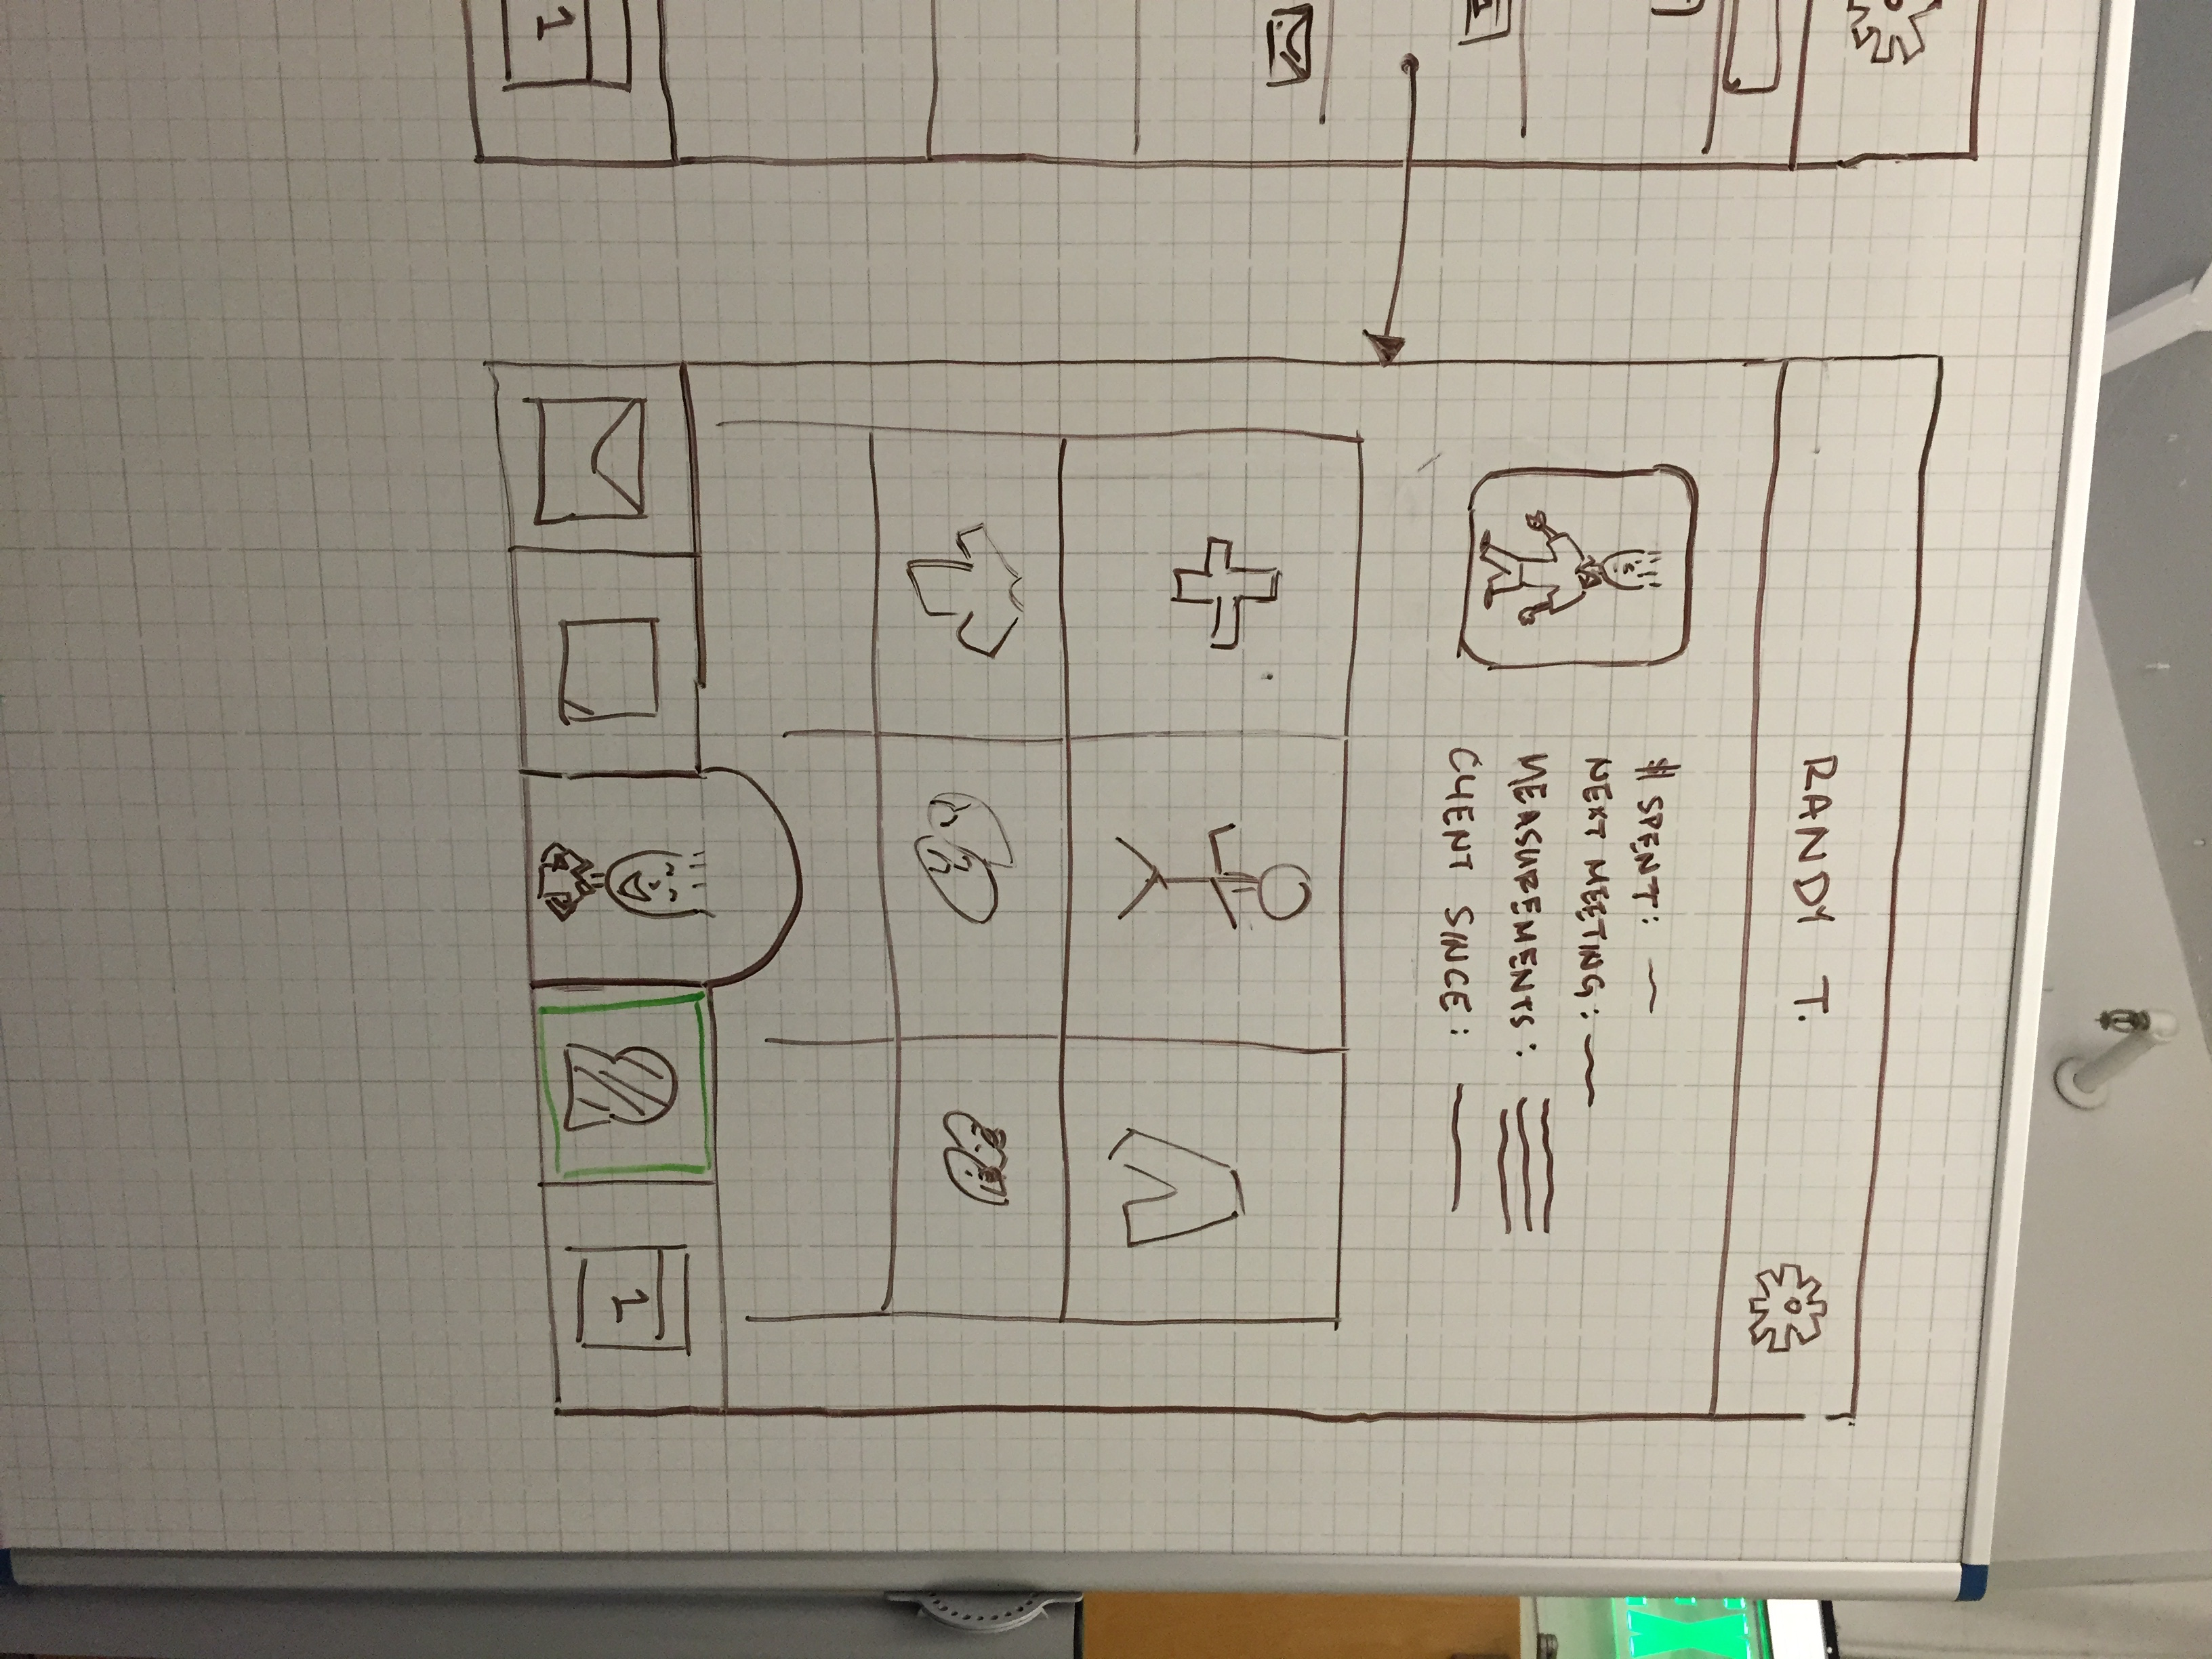 RANDY T.
$ SPENT:
NEXT MEETING:
MEASUREMENTS:
CLIENT SINCE:
1
1